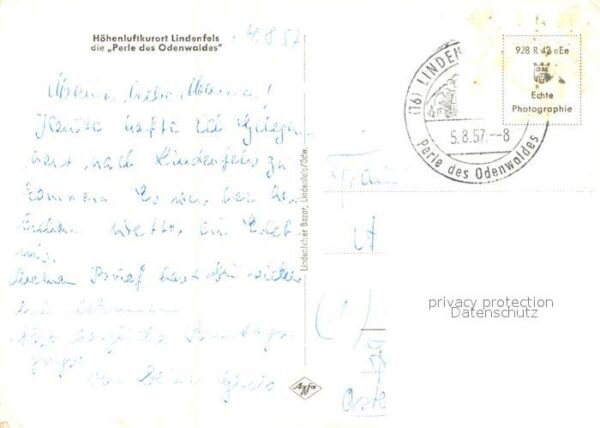 Höhenluftkurort Lindenfels
die „Perle des Odenwaldes"
4.8.57
Mama, liebe Mama!
Heute hatte ich Gelegen-
heit nach Lindenfels zu
kommen. Es war bei
Wetter ein Erleb-
nis.
Meinen Brief hast du sicher
bekommen
Also herzliche Sonntags-
grüsse
von Deiner
Lindenfelser Bazar, Lindenfels/Odw.
Agfa
(16) LINDEN
5.8.57.--8
Perle des Odenwaldes
928 R 42 eEe
Echte
Photographie
Frau
A
(1)
privacy protection
Datenschutz